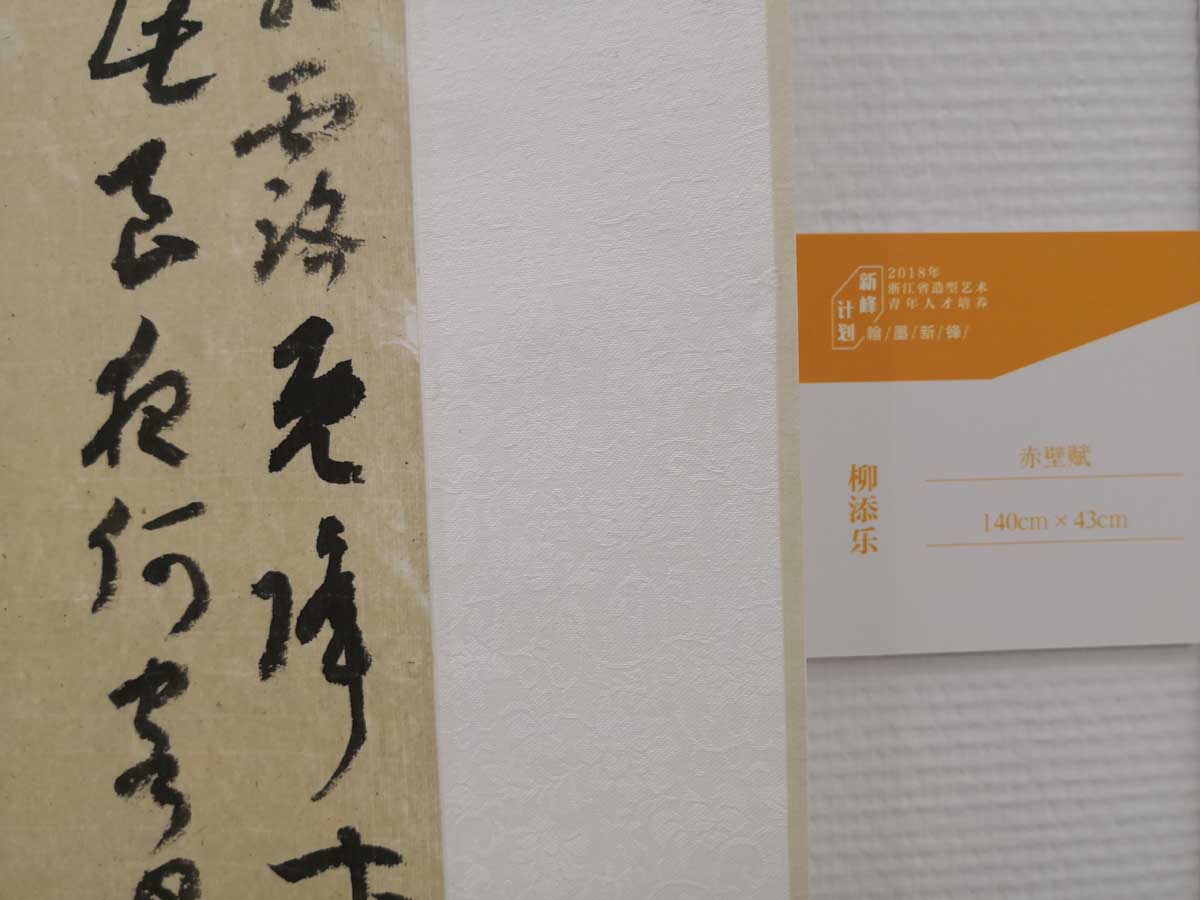 露既降木
良夜何客曰
新峰
计划
2018年
浙江省造型艺术
青年人才培养
翰/墨/新/锋/
柳添乐
赤壁赋
140cm × 43cm